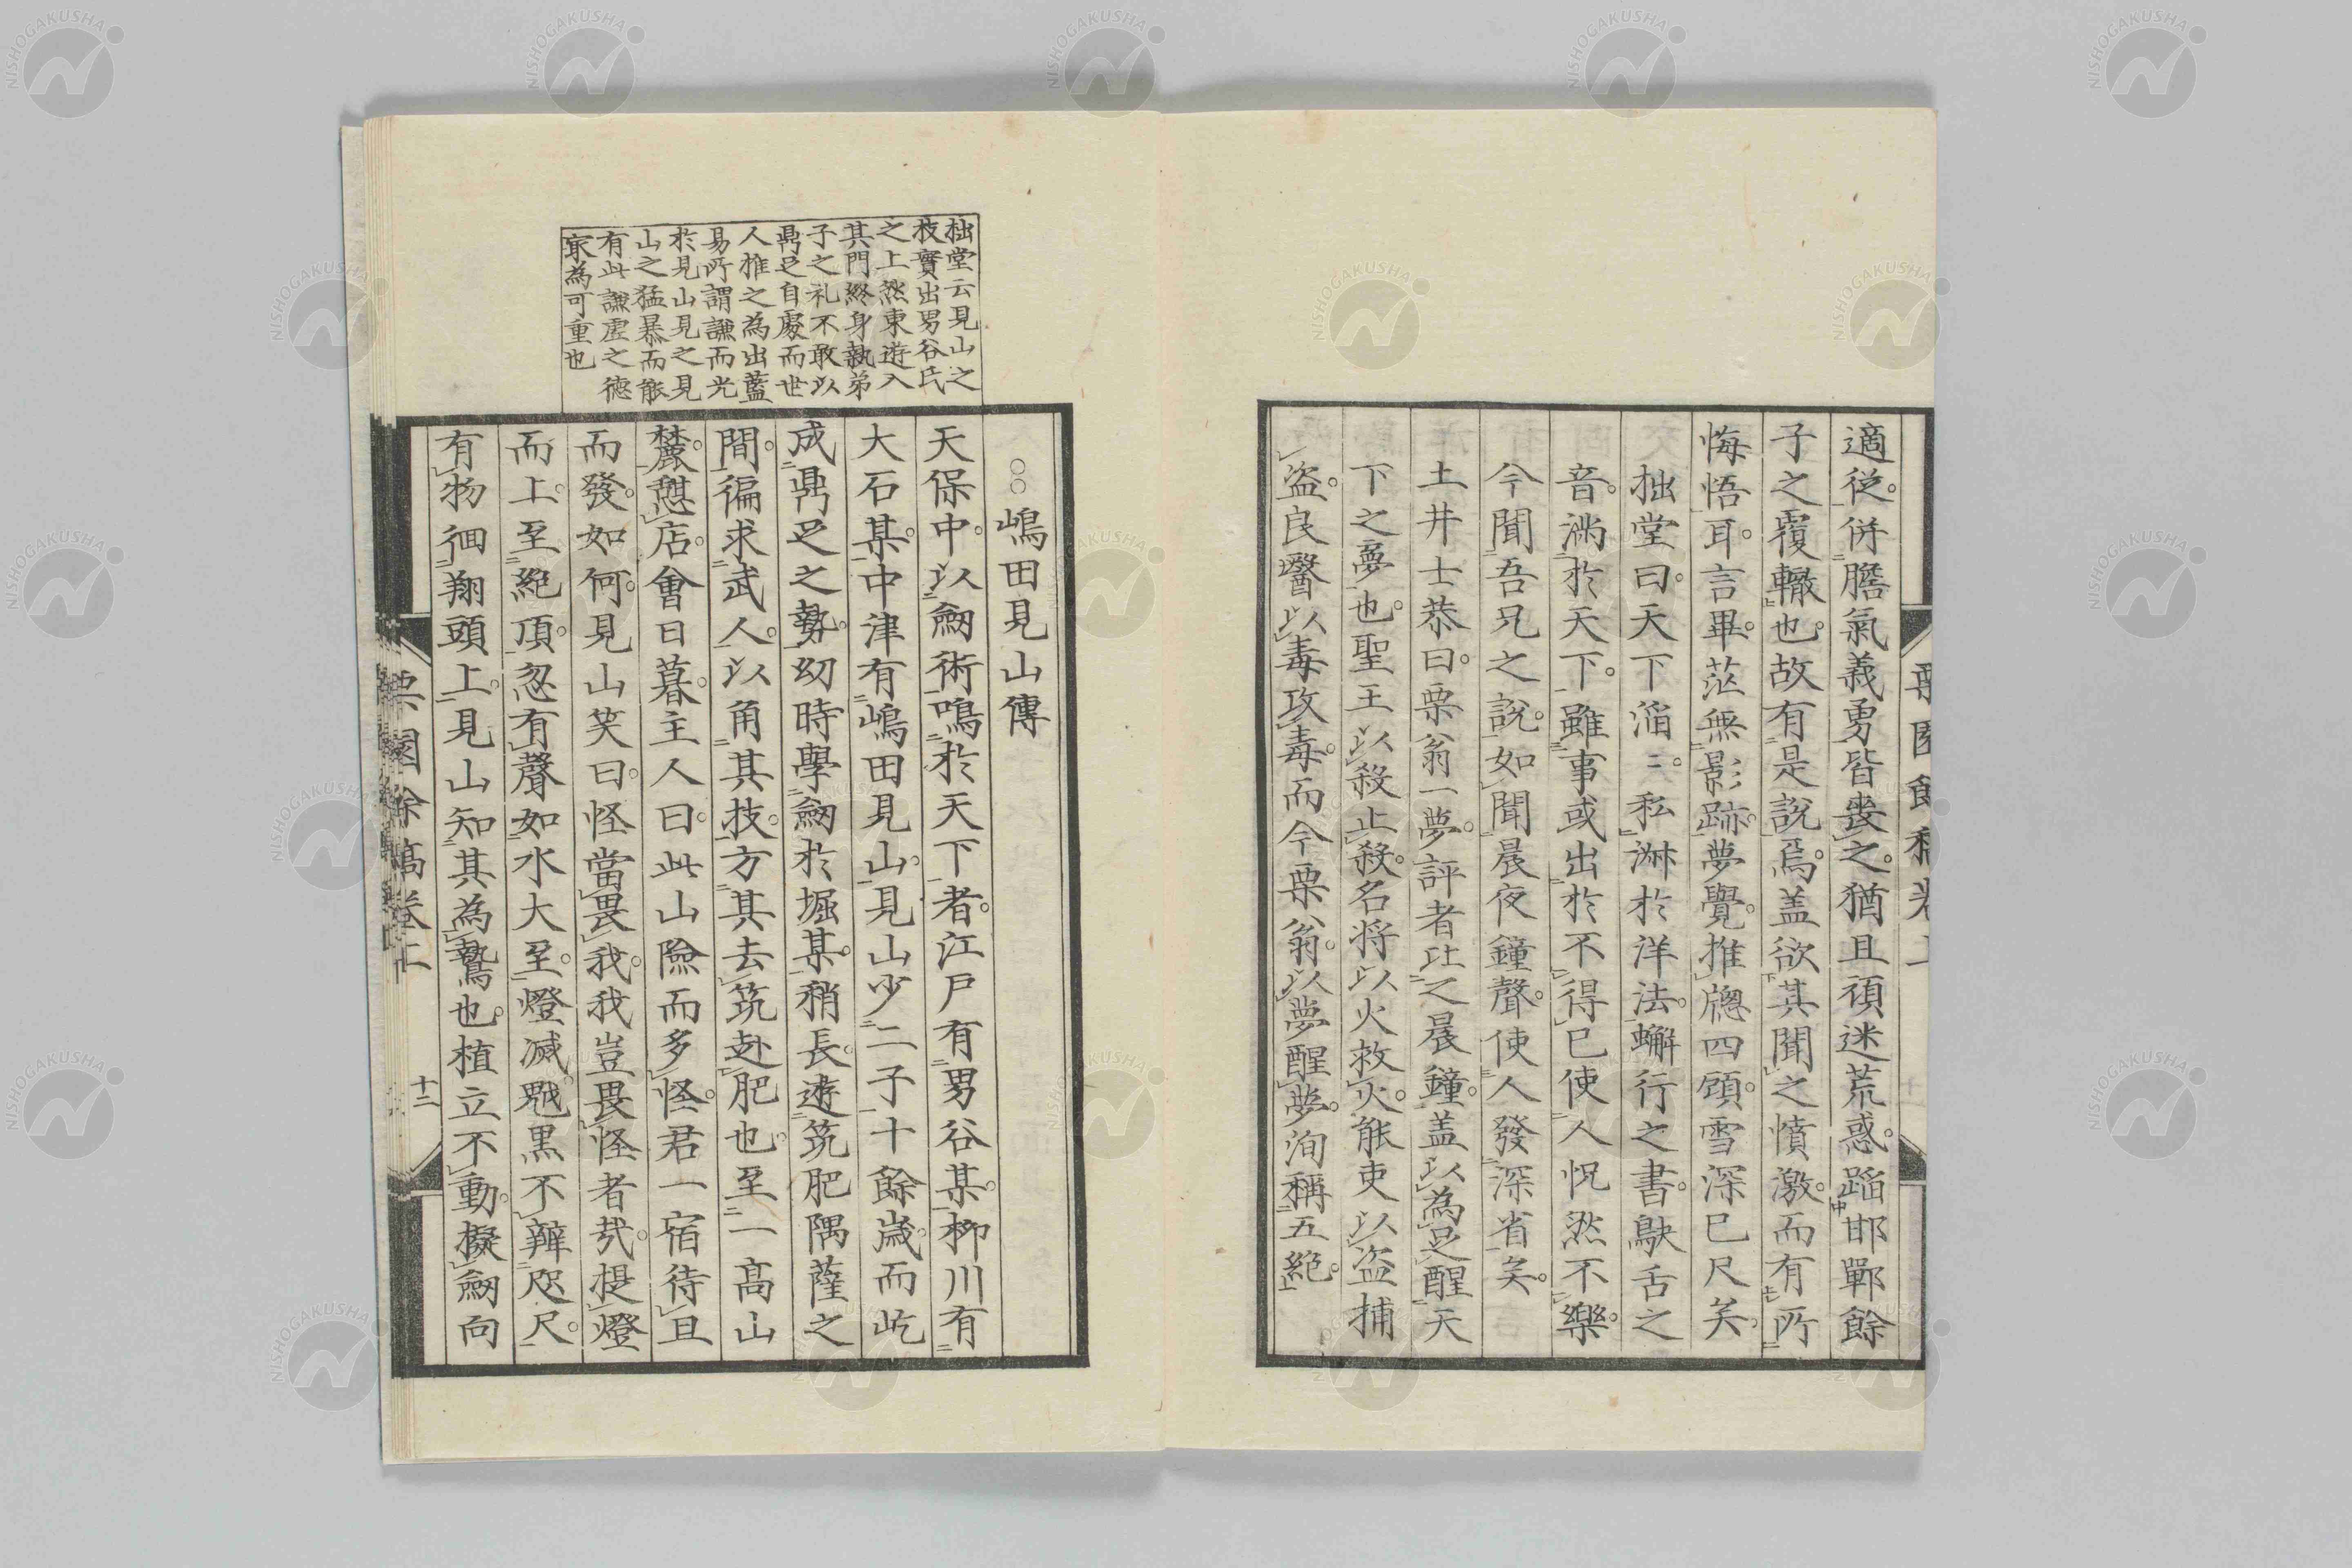 適從。併膽氣義勇皆喪之。猶且頑迷荒惑。蹈邯鄲餘
子之覆轍也。故有是說焉。蓋欲其聞之憤激。而有所
悔悟耳。言畢。茫無影跡。夢覺。推牕四顧。雪深已尺矣。
拙堂曰。天下滔〻。私淑於洋法。蠏行之書。鴃舌之
音。滿於天下。雖事或出於不得已。使人怳然不樂。
今聞吾兄之說。如聞晨夜鐘聲。使人發深省矣。
土井士恭曰。栗翁一夢。評者比之晨鐘。蓋以為足醒天
下之夢也。聖王以殺止殺。名將以火救火。能吏以盜捕
盜。良醫以毒攻毒。而今栗翁。以夢醒夢。洵稱五絶。
拙堂云見山之
技實出男谷氏
之上然東遊入
其門終身執弟
子之礼不敢以
鼎足自處而世
人推之為出藍
易所謂謙而光
於見山見之見
山之猛暴而能
有此謙虛之德
㝡為可重也
○○嶋田見山傳
天保中。以劒術鳴於天下者。江戸有男谷某。柳川有
大石某。中津有嶋田見山。見山少二子十餘歲。而屹
成鼎足之勢。幼時學劒於堀某。稍長。遊筑肥隅薩之
間。徧求武人。以角其技。方其去筑赴肥也。至一高山
麓。憇店。會日暮。主人曰。此山險而多怪。君一宿待旦
而發。如何。見山笑曰。怪當畏我。我豈畏怪者哉。提燈
而上。至絶頂。忽有聲如水大至。燈滅。䰟黒不辨咫尺。
有物徊翔頭上。見山知其為鷙也。植立不動。擬劒向
栗園餘稿卷上
十二